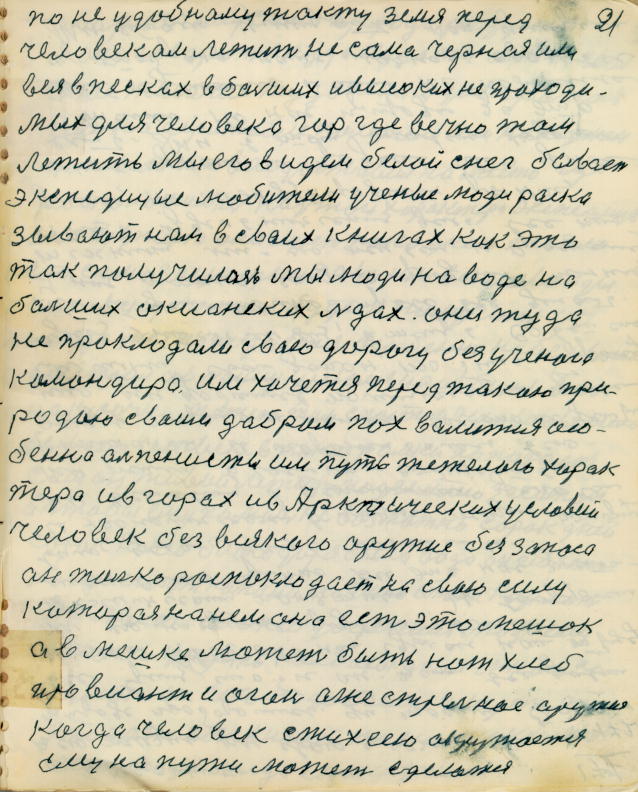 по не удобному такту земя перед 21
человекам лежит не сама черная или
вся в песках в болших и высоких не проходи-
мых для человека гор где вечно там
лежить мы его видем белой снег бывает
экспедицые любители ученые люди раска
зывают нам в сваих книгах как это
так получилось мы люди на воде на
болших окианских лдах. они туда
не прокладали сваю дорогу без ученого
командира. им хочется перед такою при-
родою своим дабром пох валится осо-
бенна алпенисты им путь тежелого харак
тера и в горах и в Арктических условий
человек без всякого оружие без запоса
он толко роспокладает на свою силу
которая на нем она ест это мешок
а в мешке может быть нож хлеб
провиант и огон огнестрелное оружие
когда человек стихсею окружается
ему на пути может сделатся